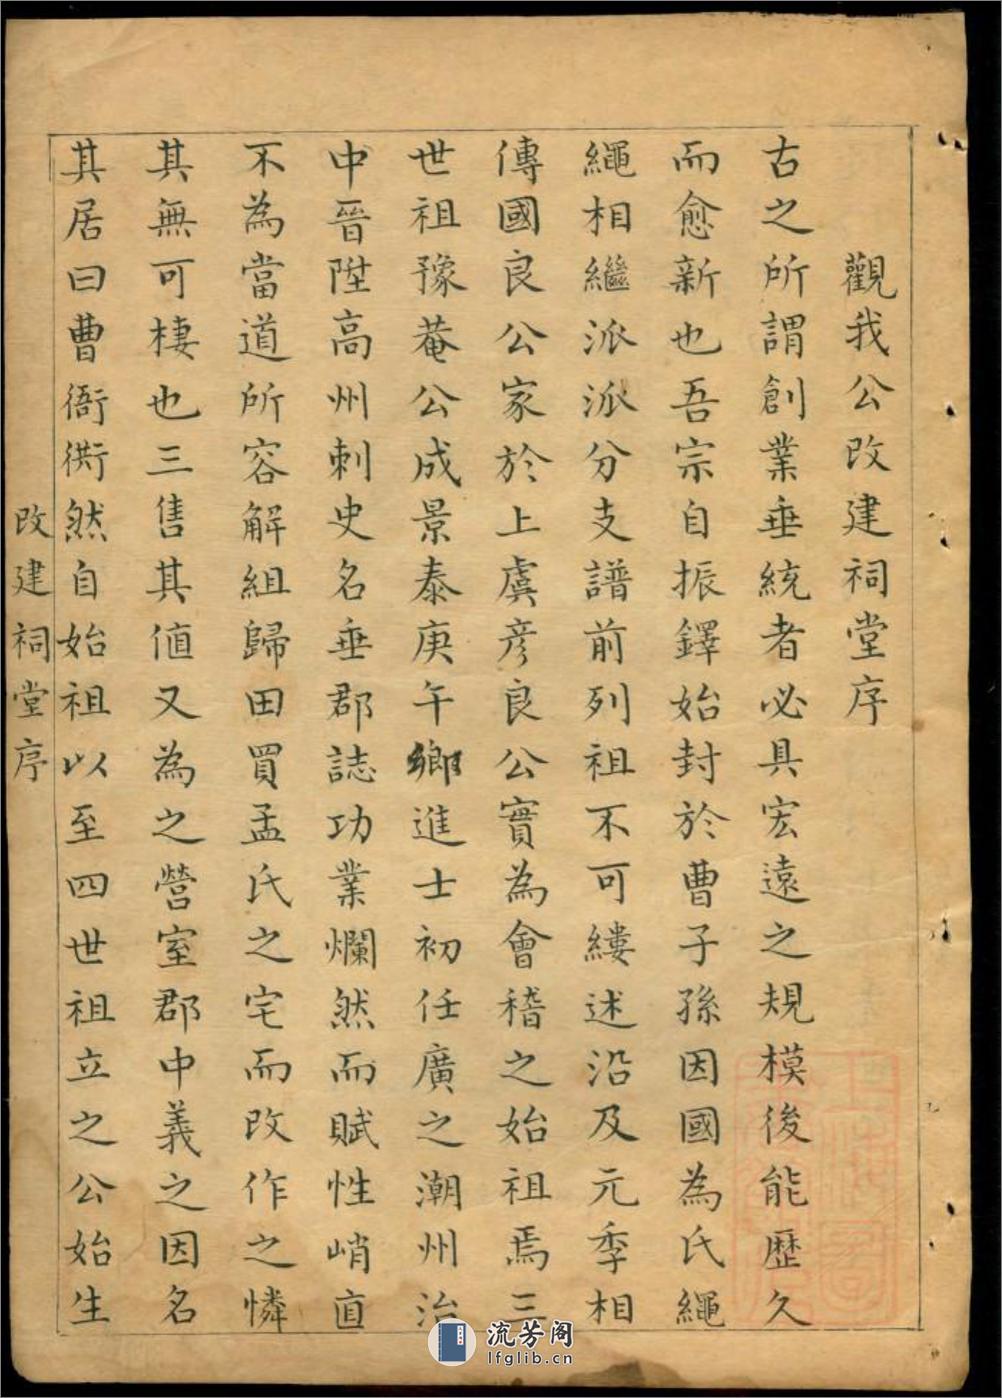 觀我公改建祠堂序
古之所謂創業垂統者必具宏遠之規模後能歷久
而愈新也吾宗自振鐸始封於曹子孫因國為氏繩
繩相繼派派分支譜前列祖不可縷述沿及元季相
傳國良公家於上虞彥良公實為會稽之始祖焉三
世祖豫菴公成景泰庚午鄉進士初任廣之潮州治
中晉陞高州刺史名垂郡誌功業爛然而賦性峭直
不為當道所容解組歸田買孟氏之宅而改作之憐
其無可棲也三售其值又為之營室郡中義之因名
其居曰曹衙衖然自始祖以至四世祖立之公始生
改建祠堂序
流芳阁
lfglib.cn